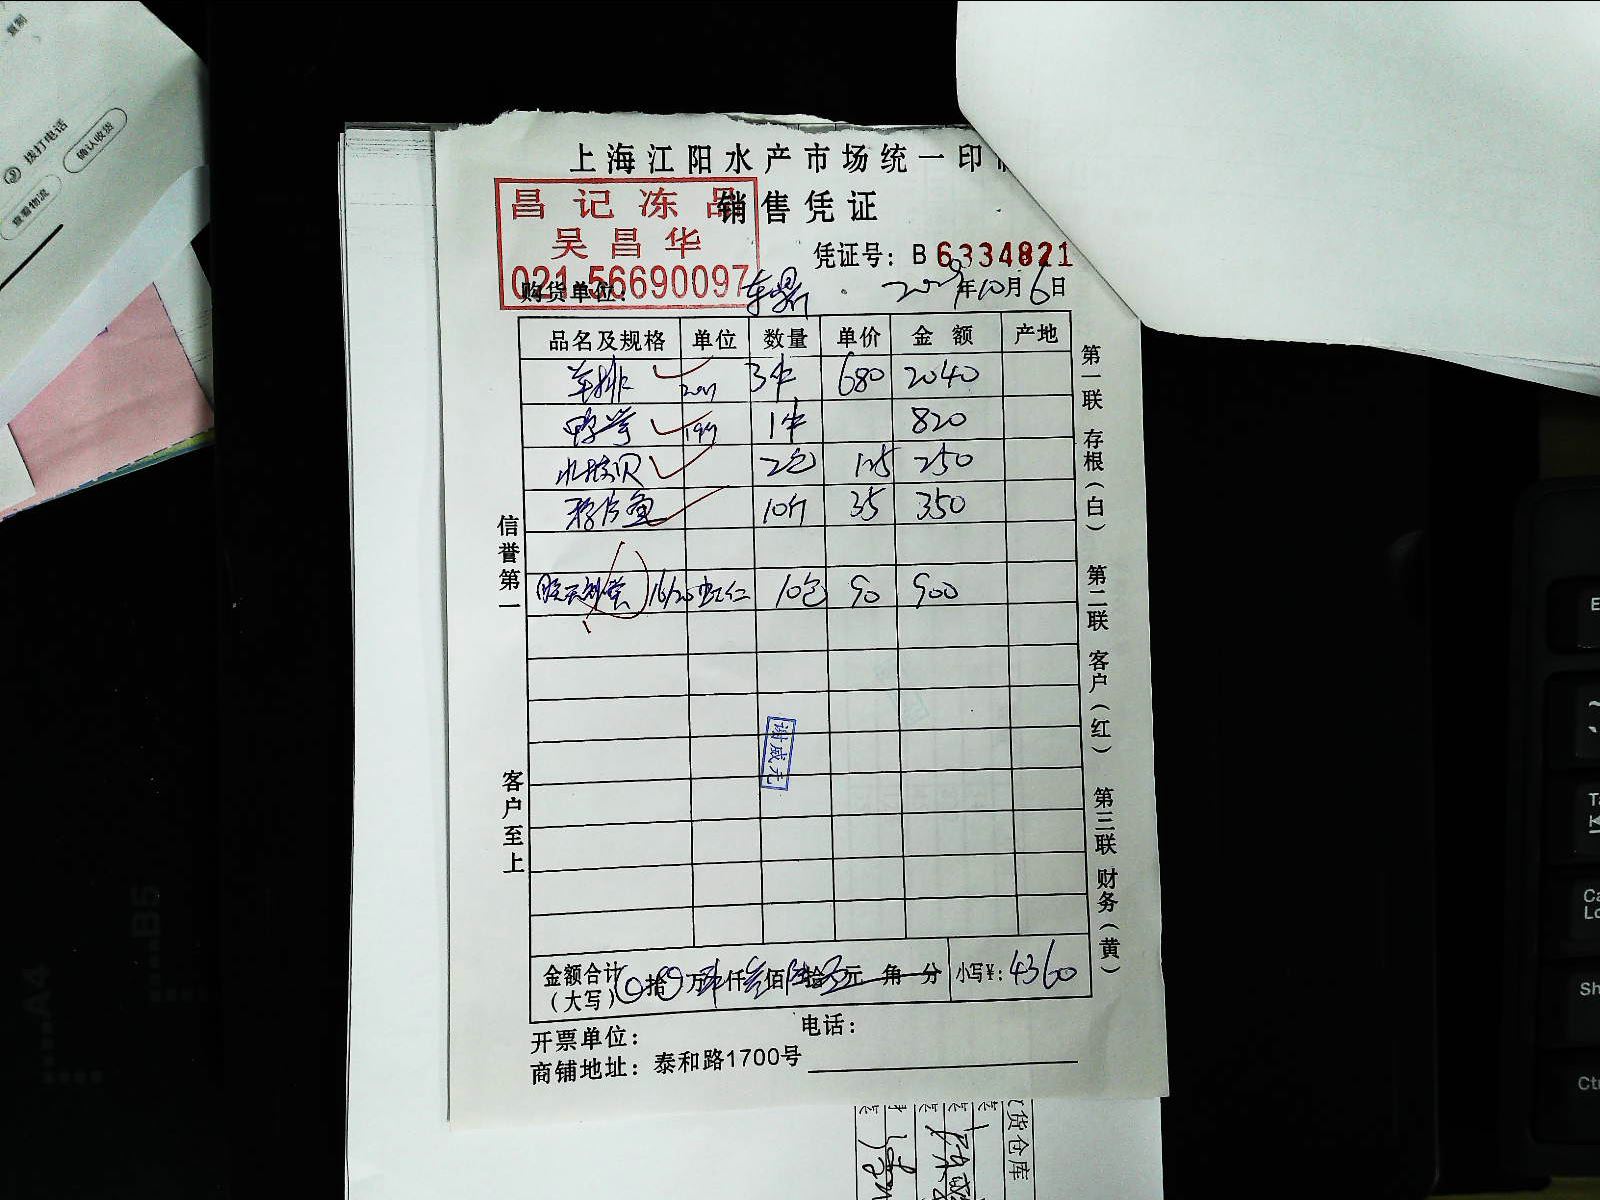 复制
拨打电话
确认收货
查看物流
上海江阳水产市场统一印
销售凭证
昌记冻品
吴昌华
021-56690097
凭证号：B 6334821
购货单位：
年10月6日
品名及规格 单位 数量 单价 金额 产地
羊排 3件 680 2040
1件 820
2包 125 250
10斤 35 350
16/20虾仁 10包 90 900
谢威先
信誉第一
客户至上
第一联 存根（白）
第二联 客户（红）
第三联 财务（黄）
金额合计（大写） 拾 万肆仟叁佰陆拾 元 角 分 小写¥：4360
开票单位： 电话：
商铺地址：泰和路1700号
货仓库
A4
B5